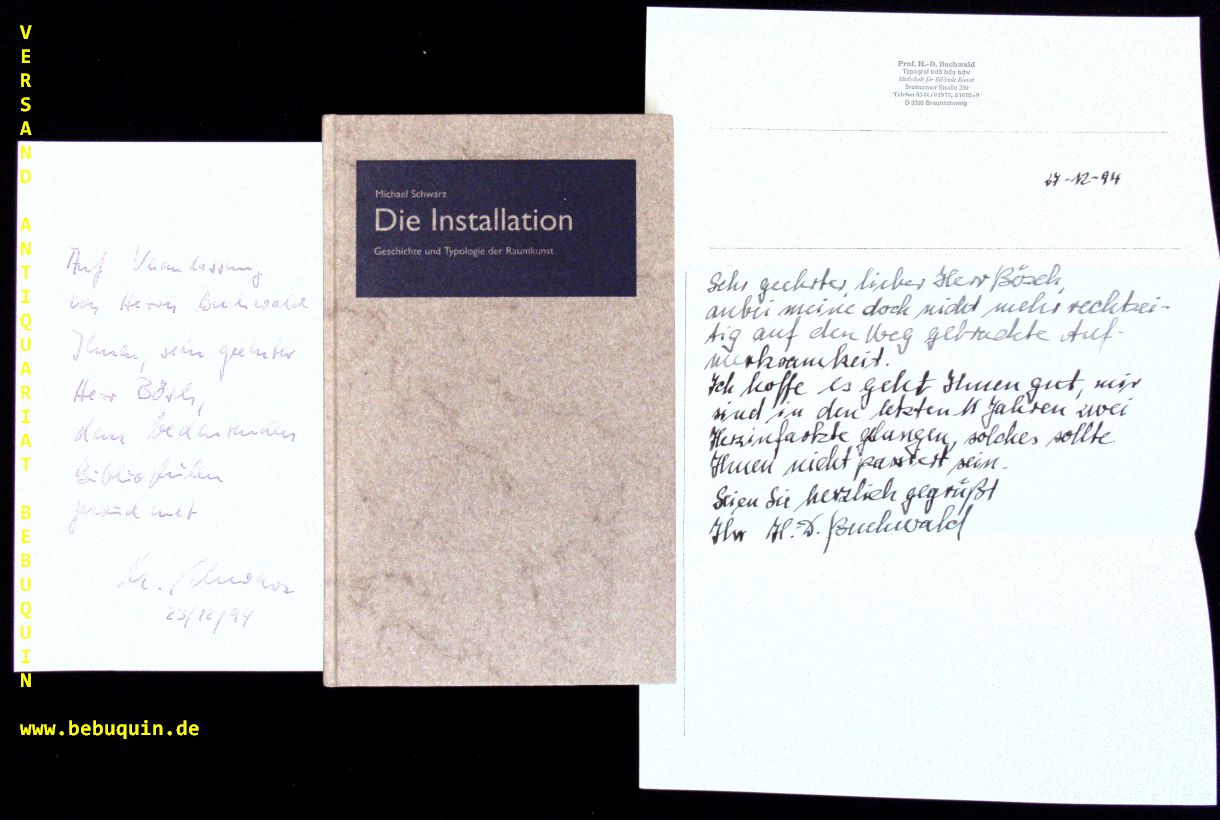 VERSAND ANTIQUARIAT BEBUQUIN
www.bebuquin.de
Auf Veranlassung
von Herrn Buchwald
Ihnen, sehr geehrter
Herr Bösch,
dem bedeutenden
Bibliophilen
gewidmet
M. Schwarz
23/12/94
Michael Schwarz
Die Installation
Geschichte und Typologie der Raumkunst
Prof. H.-D. Buchwald
Typograf bdb hdg bdw
Hochschule für Bildende Künste
Straße 230
Telefon
D 3300 Braunschweig
27-12-94
Sehr geehrter, lieber Herr Bösch,
anbei meine doch nicht mehr rechtzei-
tig auf den Weg gebrachte Auf-
merksamkeit.
Ich hoffe es geht Ihnen gut, mir
sind in den letzten 11 Jahren zwei
Herzinfarkte gelungen, solches sollte
Ihnen nicht passiert sein.
Seien Sie herzlich gegrüßt
Ihr H.-D. Buchwald